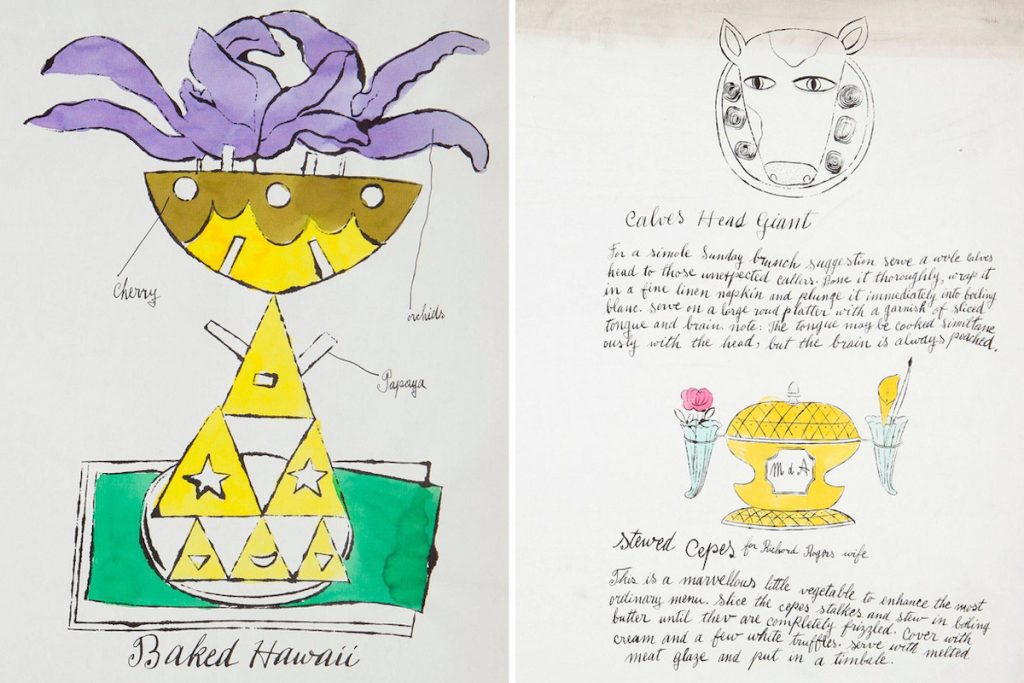 Cherry
orchids
Papaya
Baked Hawaii
Calves Head Giant
For a simole Sunday brunch suggestion serve a wole calves
head to those unexpected callers. Bone it thoroughly, wrap it
in a fine linen napkin and plunge it immediately into boiling
blanc. serve on a large roud platter with a garnish of sliced
tongue and brain. note: The tongue may be cooked simultane
ously with the head, but the brain is always poached.
M d A
Stewed Cepes for Richard Rogers wife
This is a marvellous little vegetable to enhance the most
ordinary menu. Slice the cepes stalkes and stew in boiling
butter until thev are completely frizzled. Cover with
cream and a few white truffles. Serve with melted
meat glaze and put in a timbale.